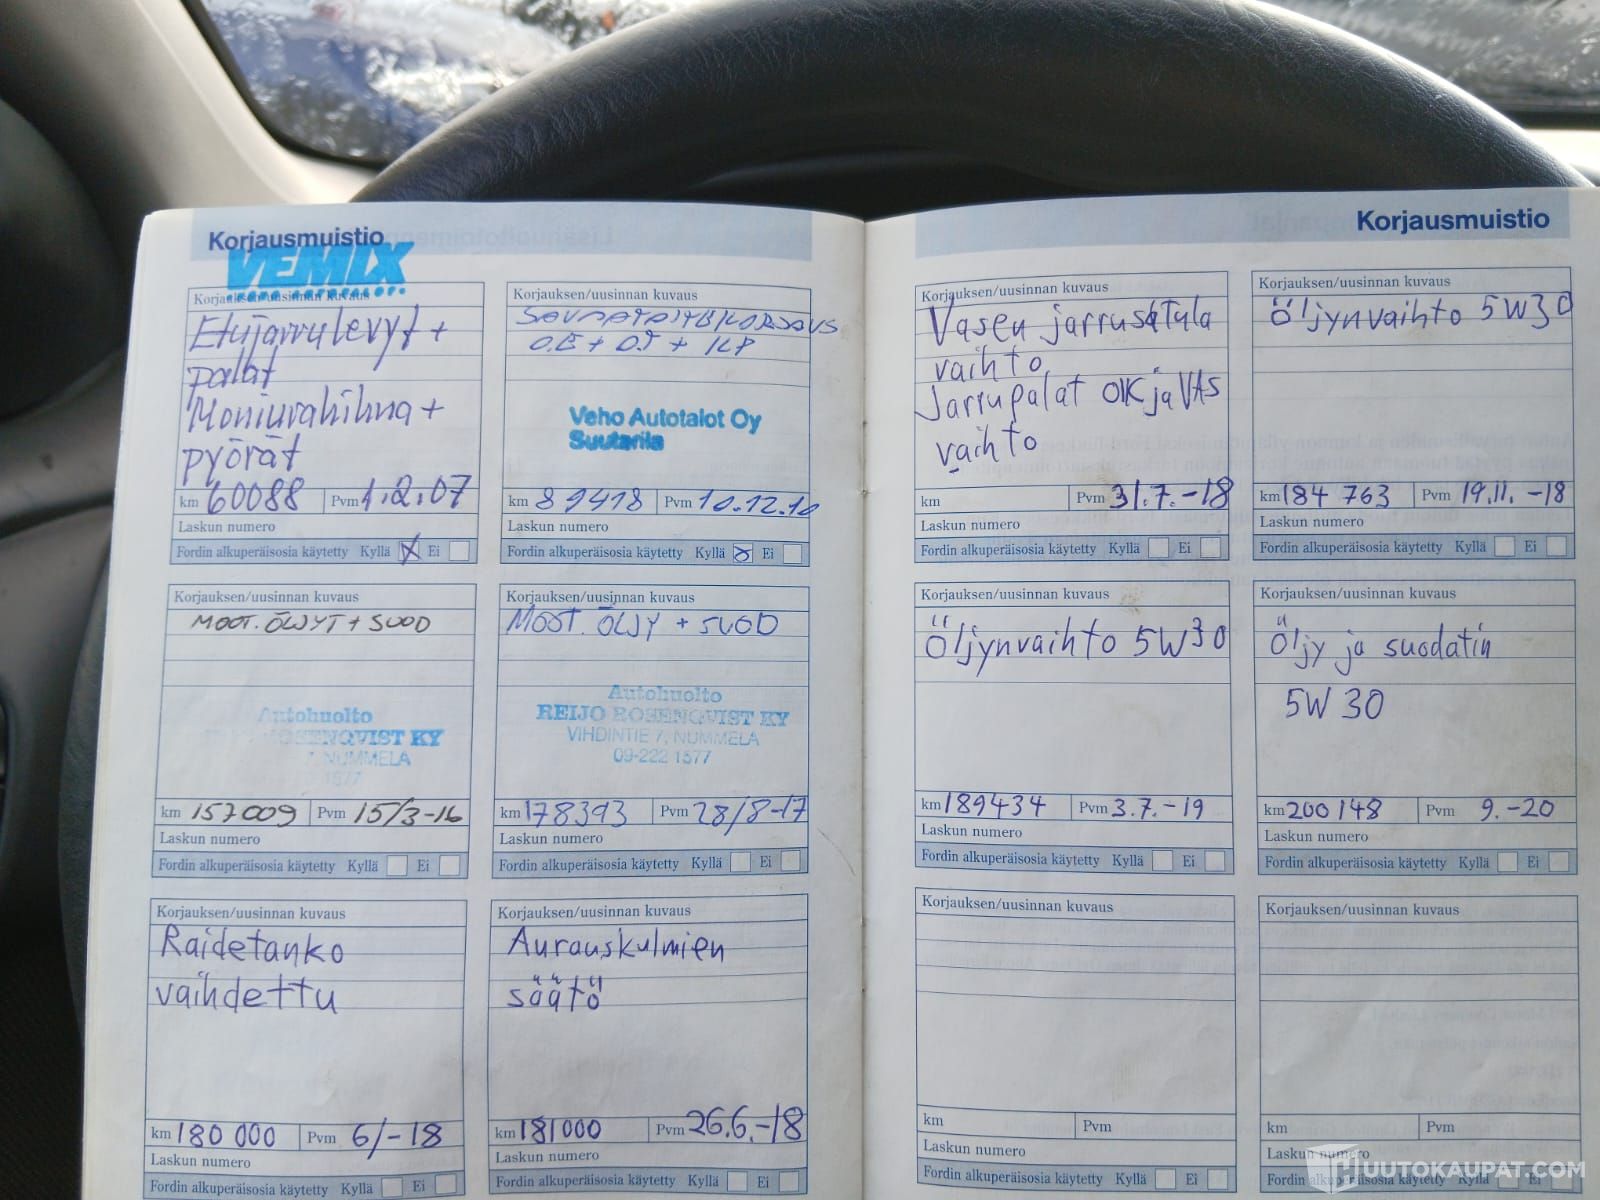 Korjausmuistio
VEMIX
Korjauksen/uusinnan kuvaus
Etujarrulevyt +
palat
Moniurahihna +
pyörät
km 60088 Pvm 1.2.07
Laskun numero
Fordin alkuperäisosia käytetty Kyllä X Ei
Korjauksen/uusinnan kuvaus
O.E + O.T + ILP
Veho Autotalot Oy
Suutarila
km 89418 Pvm 10.12.10
Laskun numero
Fordin alkuperäisosia käytetty Kyllä Ei
Korjauksen/uusinnan kuvaus
MOOT. ÖLJYT + SUOD
Autohuolto
ROSENQVIST KY
7, NUMMELA
1577
km 157009 Pvm 15/3-16
Laskun numero
Fordin alkuperäisosia käytetty Kyllä Ei
Korjauksen/uusinnan kuvaus
MOOT. ÖLJY + SUOD
Autohuolto
REIJO ROSENQVIST KY
VIHDINTIE 7, NUMMELA
09-222 1577
km 178393 Pvm 28/8-17
Laskun numero
Fordin alkuperäisosia käytetty Kyllä Ei
Korjauksen/uusinnan kuvaus
Raidetanko
vaihdettu
km 180 000 Pvm 6/-18
Laskun numero
Fordin alkuperäisosia käytetty Kyllä Ei
Korjauksen/uusinnan kuvaus
Aurauskulmien
säätö
km 181000 Pvm 26.6.-18
Laskun numero
Fordin alkuperäisosia käytetty Kyllä Ei
Korjausmuistio
Korjauksen/uusinnan kuvaus
Vasen jarrusatula
vaihto
Jarrupalat OIK ja VAS
vaihto
km Pvm 31.7.-18
Laskun numero
Fordin alkuperäisosia käytetty Kyllä Ei
Korjauksen/uusinnan kuvaus
Öljynvaihto 5W30
km 184 763 Pvm 19.11.-18
Laskun numero
Fordin alkuperäisosia käytetty Kyllä Ei
Korjauksen/uusinnan kuvaus
Öljynvaihto 5W30
km 189434 Pvm 3.7.-19
Laskun numero
Fordin alkuperäisosia käytetty Kyllä Ei
Korjauksen/uusinnan kuvaus
Öljy ja suodatin
5W 30
km 200 148 Pvm 9.-20
Laskun numero
Fordin alkuperäisosia käytetty Kyllä Ei
Korjauksen/uusinnan kuvaus
km Pvm
Laskun numero
Fordin alkuperäisosia käytetty Kyllä Ei
Korjauksen/uusinnan kuvaus
km Pvm
Laskun numero
Fordin alkuperäisosia käytetty Kyllä Ei
HUUTOKAUPAT.COM